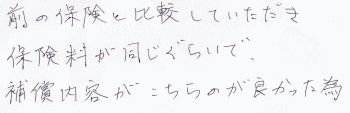 前の保険と比較していただき
保険料が同じぐらいで、
補償内容がこちらのが良かった為